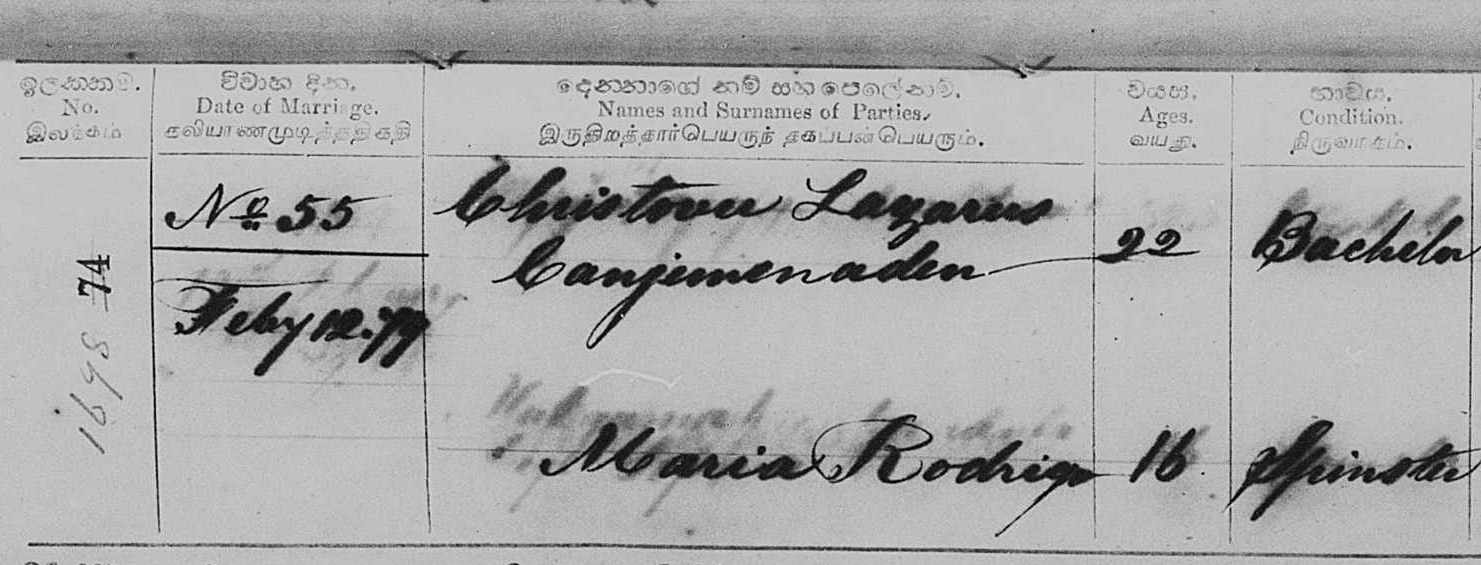 ඉලක්කම. විවාහ දින. දෙන්නාගේ නම් සහ පෙලේනාම්. වයස. තාවය.
No. Date of Marriage. Names and Surnames of Parties. Ages. Condition.
இலக்கம் கலியாணமுடித்ததிகதி இருதிறத்தார்பெயருந் தகப்பன்பெயரும். வயது. நிருவாகம்.
No 55 Christover Lazarus
74 Canjemenaden 22 Bachelor
Feby 12. 79
1698
Maria Rodrigo 16 Spinster